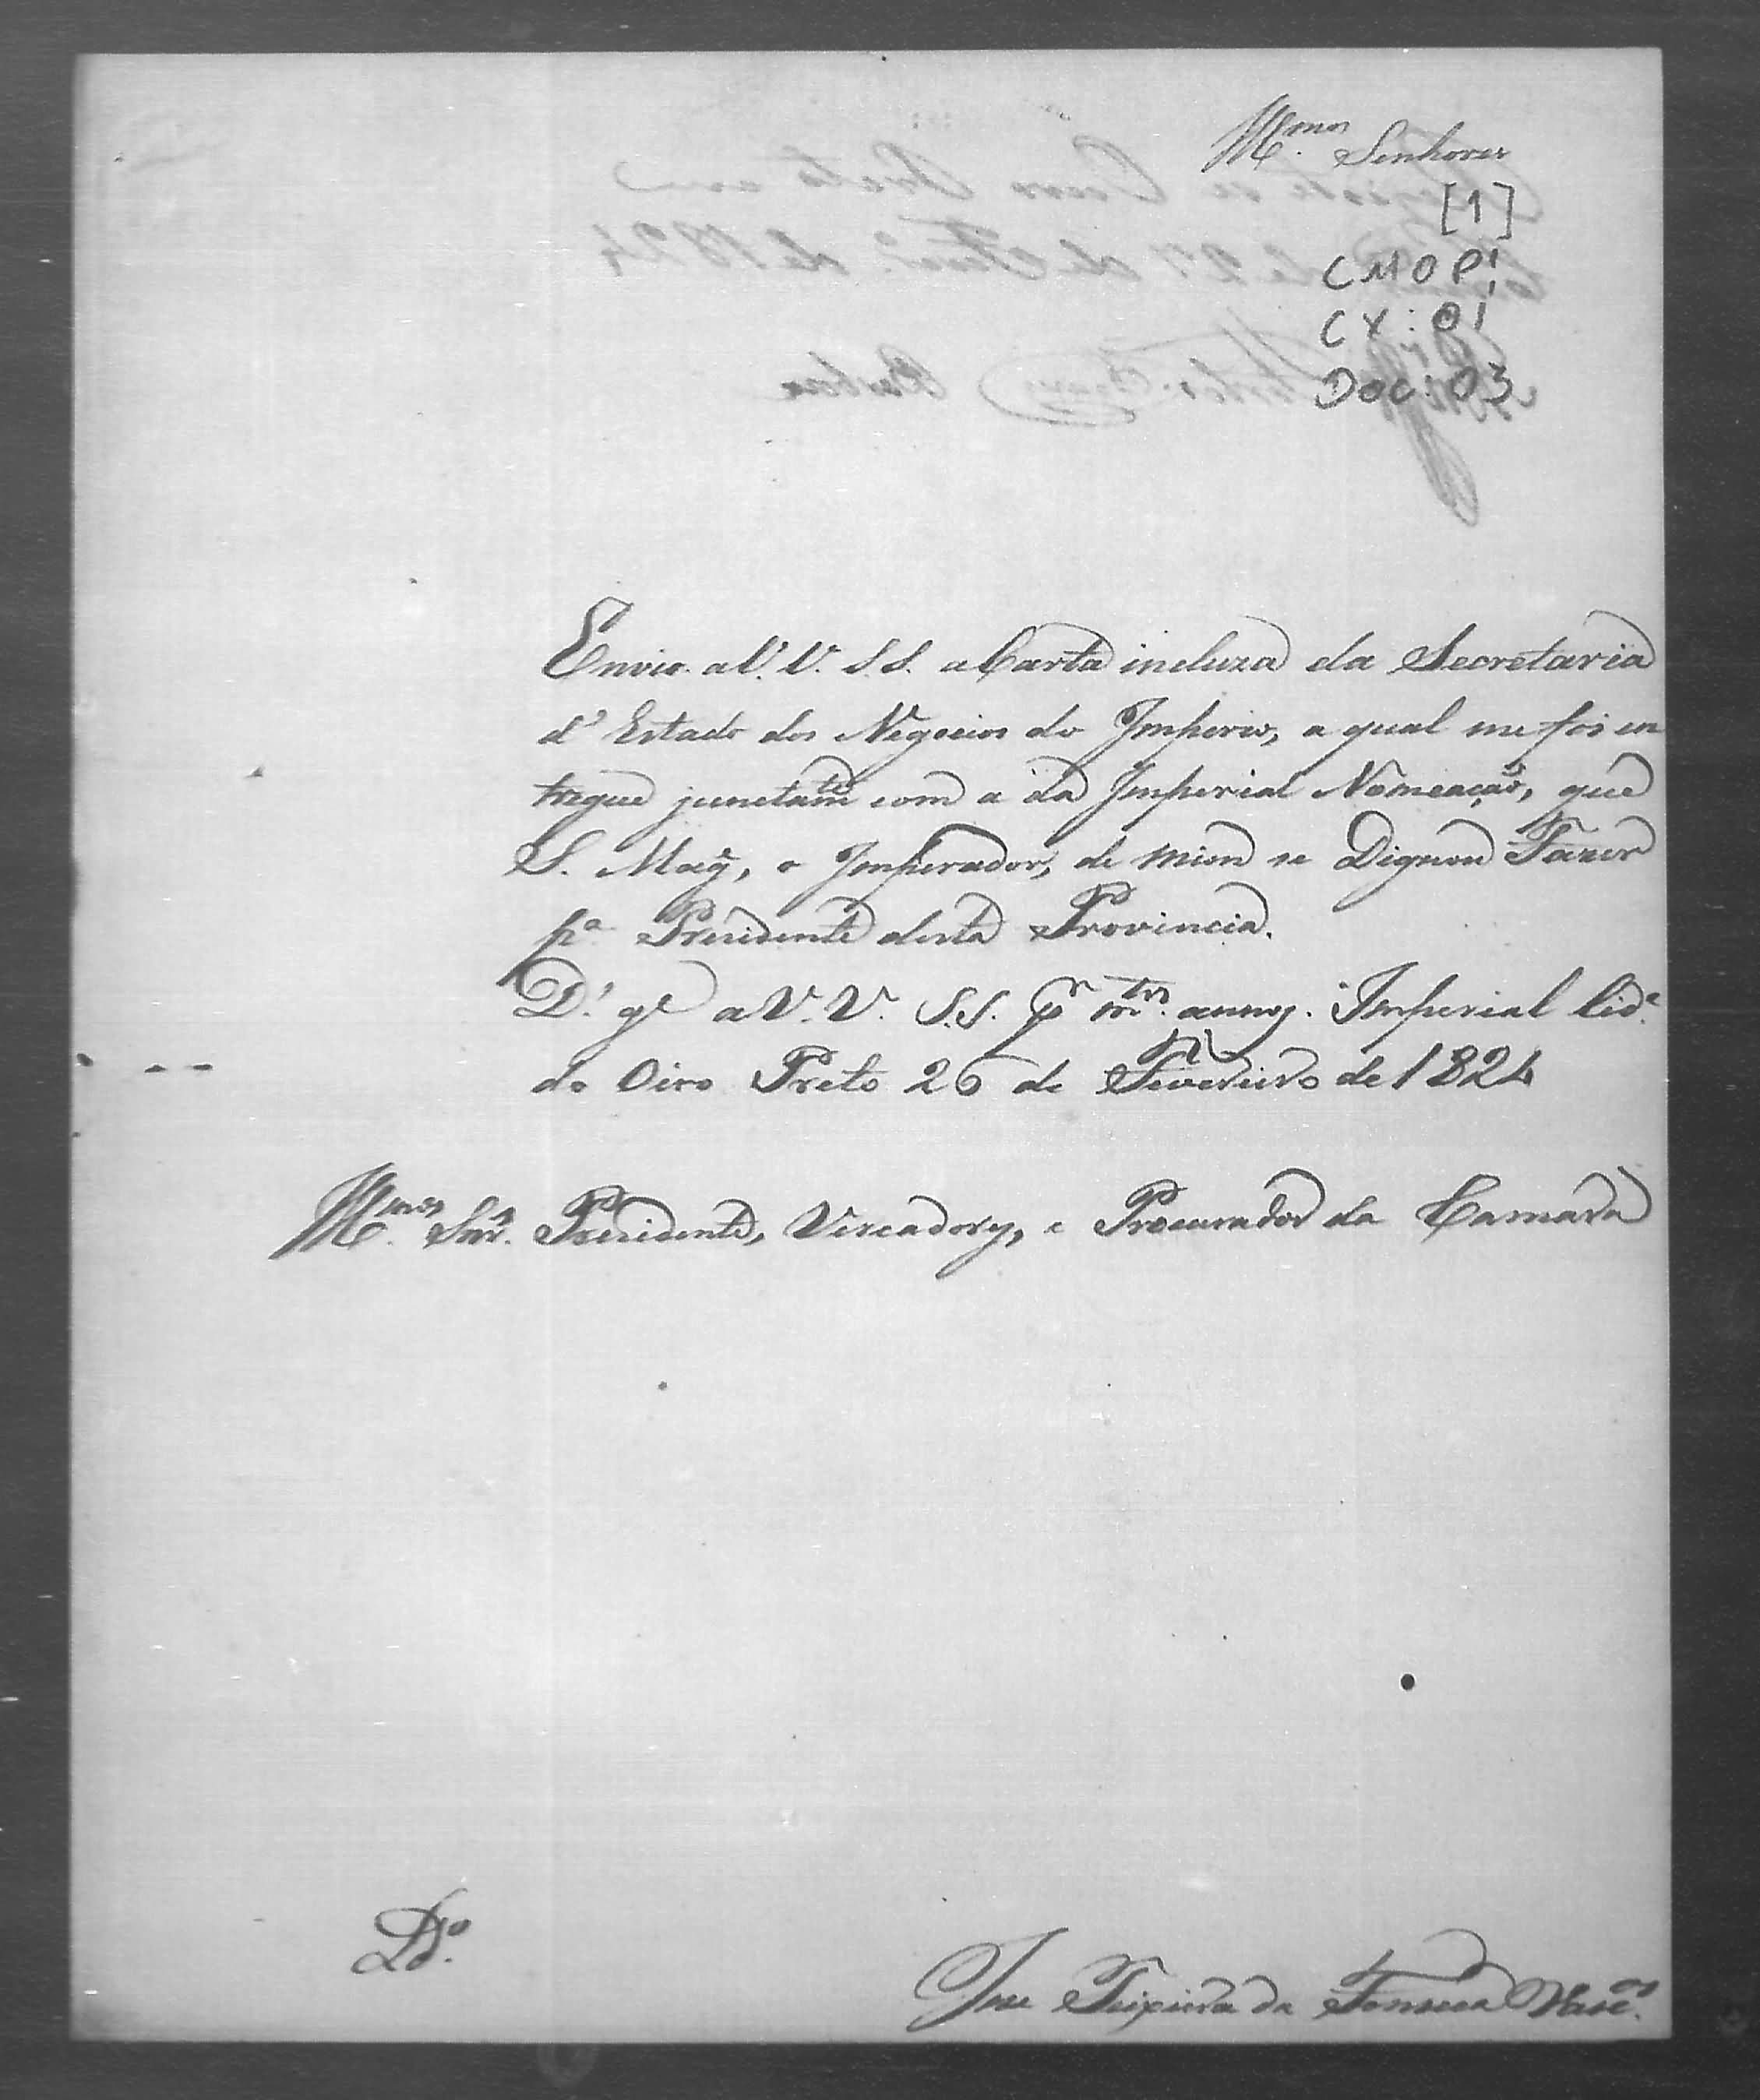 Illmos. Senhores
[1]
CMOP:
CX: 01
Doc: 03
Envio a V. V. S. S. a Carta incluza da Secretaria
d' Estado dos Negocios do Imperio, a qual me foi en
tregue junctamte com a da Imperial Nomeação, que
S. Mage, o Imperador, de mim se Dignou Fazer
pa Presidente desta Provincia.
Ds. ge a V. V. S. S. pr mtos. annos. Imperial Cide.
do Oiro Preto 26 de Fevereiro de 1824
Illmos. Snrs. Presidente, Vereadores, e Procurador da Camara
Jose Teixeira da Fonseca Vascos.